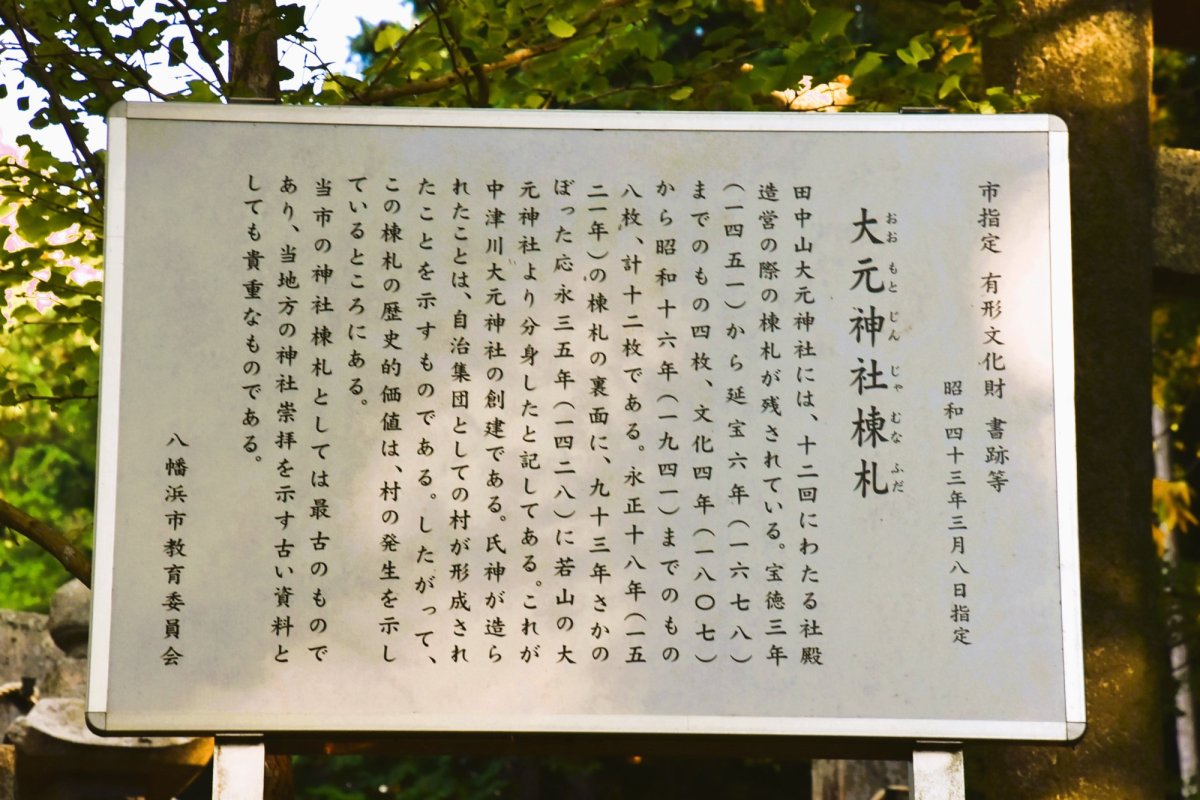 市指定 有形文化財 書跡等
昭和四十三年三月八日指定
大元神社棟札
おおもとじんじゃむなふだ
田中山大元神社には、十二回にわたる社殿
造営の際の棟札が残されている。宝徳三年
(一四五一)から延宝六年(一六七八)
までのもの四枚、文化四年(一八〇七)
から昭和十六年(一九四一)までのもの
八枚、計十二枚である。永正十八年(一五
二一年)の棟札の裏面に、九十三年さかの
ぼった応永三五年(一四二八)に若山の大
元神社より分身したと記してある。これが
中津川大元神社の創建である。氏神が造ら
れたことは、自治集団としての村が形成され
たことを示すものである。したがって、
この棟札の歴史的価値は、村の発生を示し
ているところにある。
当市の神社棟札としては最古のもので
あり、当地方の神社崇拝を示す古い資料と
しても貴重なものである。
八幡浜市教育委員会